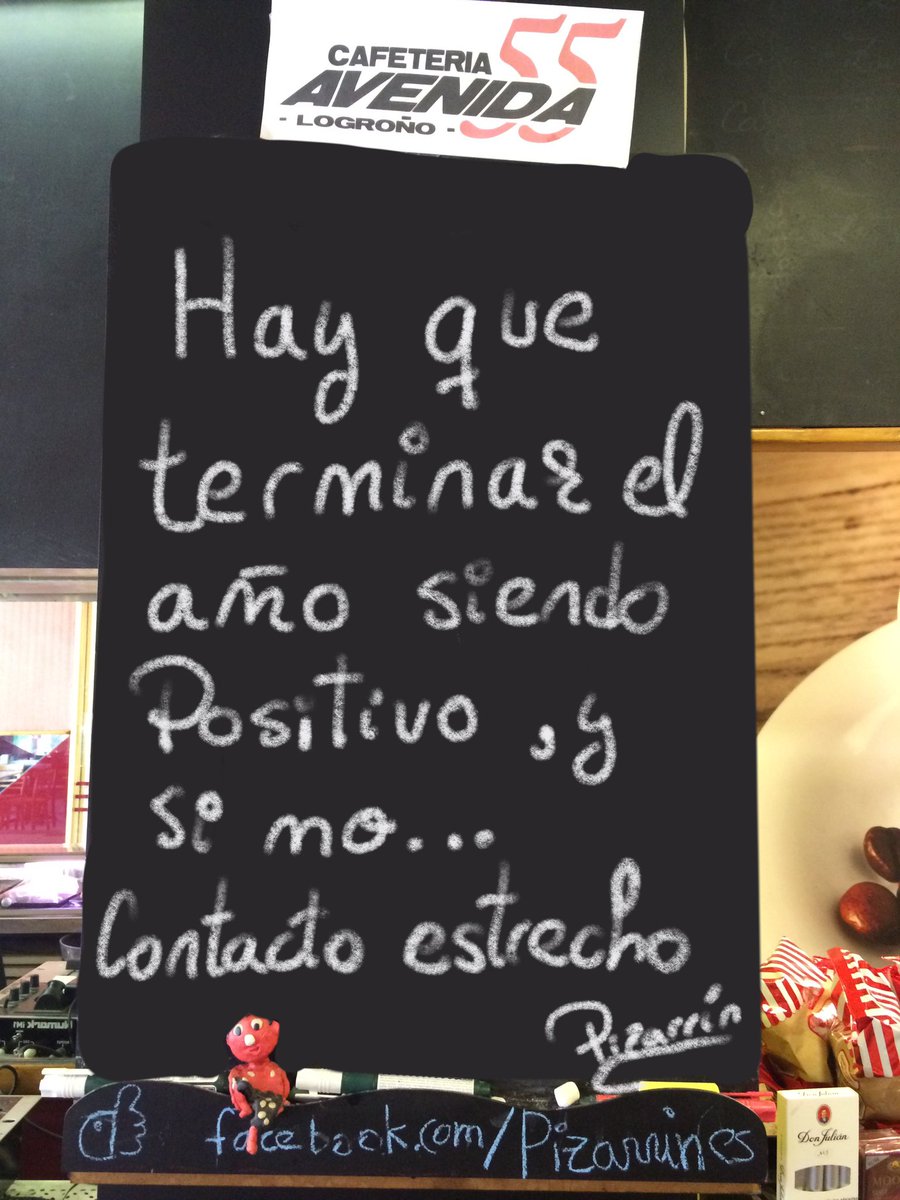 CAFETERIA 55
AVENIDA
- LOGROÑO -
Hay que
terminar el
año siendo
Positivo, y
si no...
Contacto estrecho
Pizarrín
facebook.com/Pizarrines
Don Julián